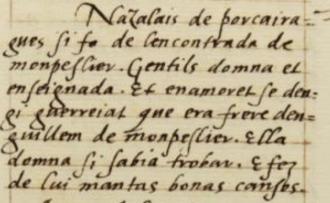 Nazalais de porcaira=
gues si fo de lencontrada de
monpeslier. Gentils domna et
enseignada. Et enamoret se den=
gi guerreiat que era frere den=
guillem de monpeslier. Ella
domna si sabia trobar. E fez
de lui mantas bonas cansos.